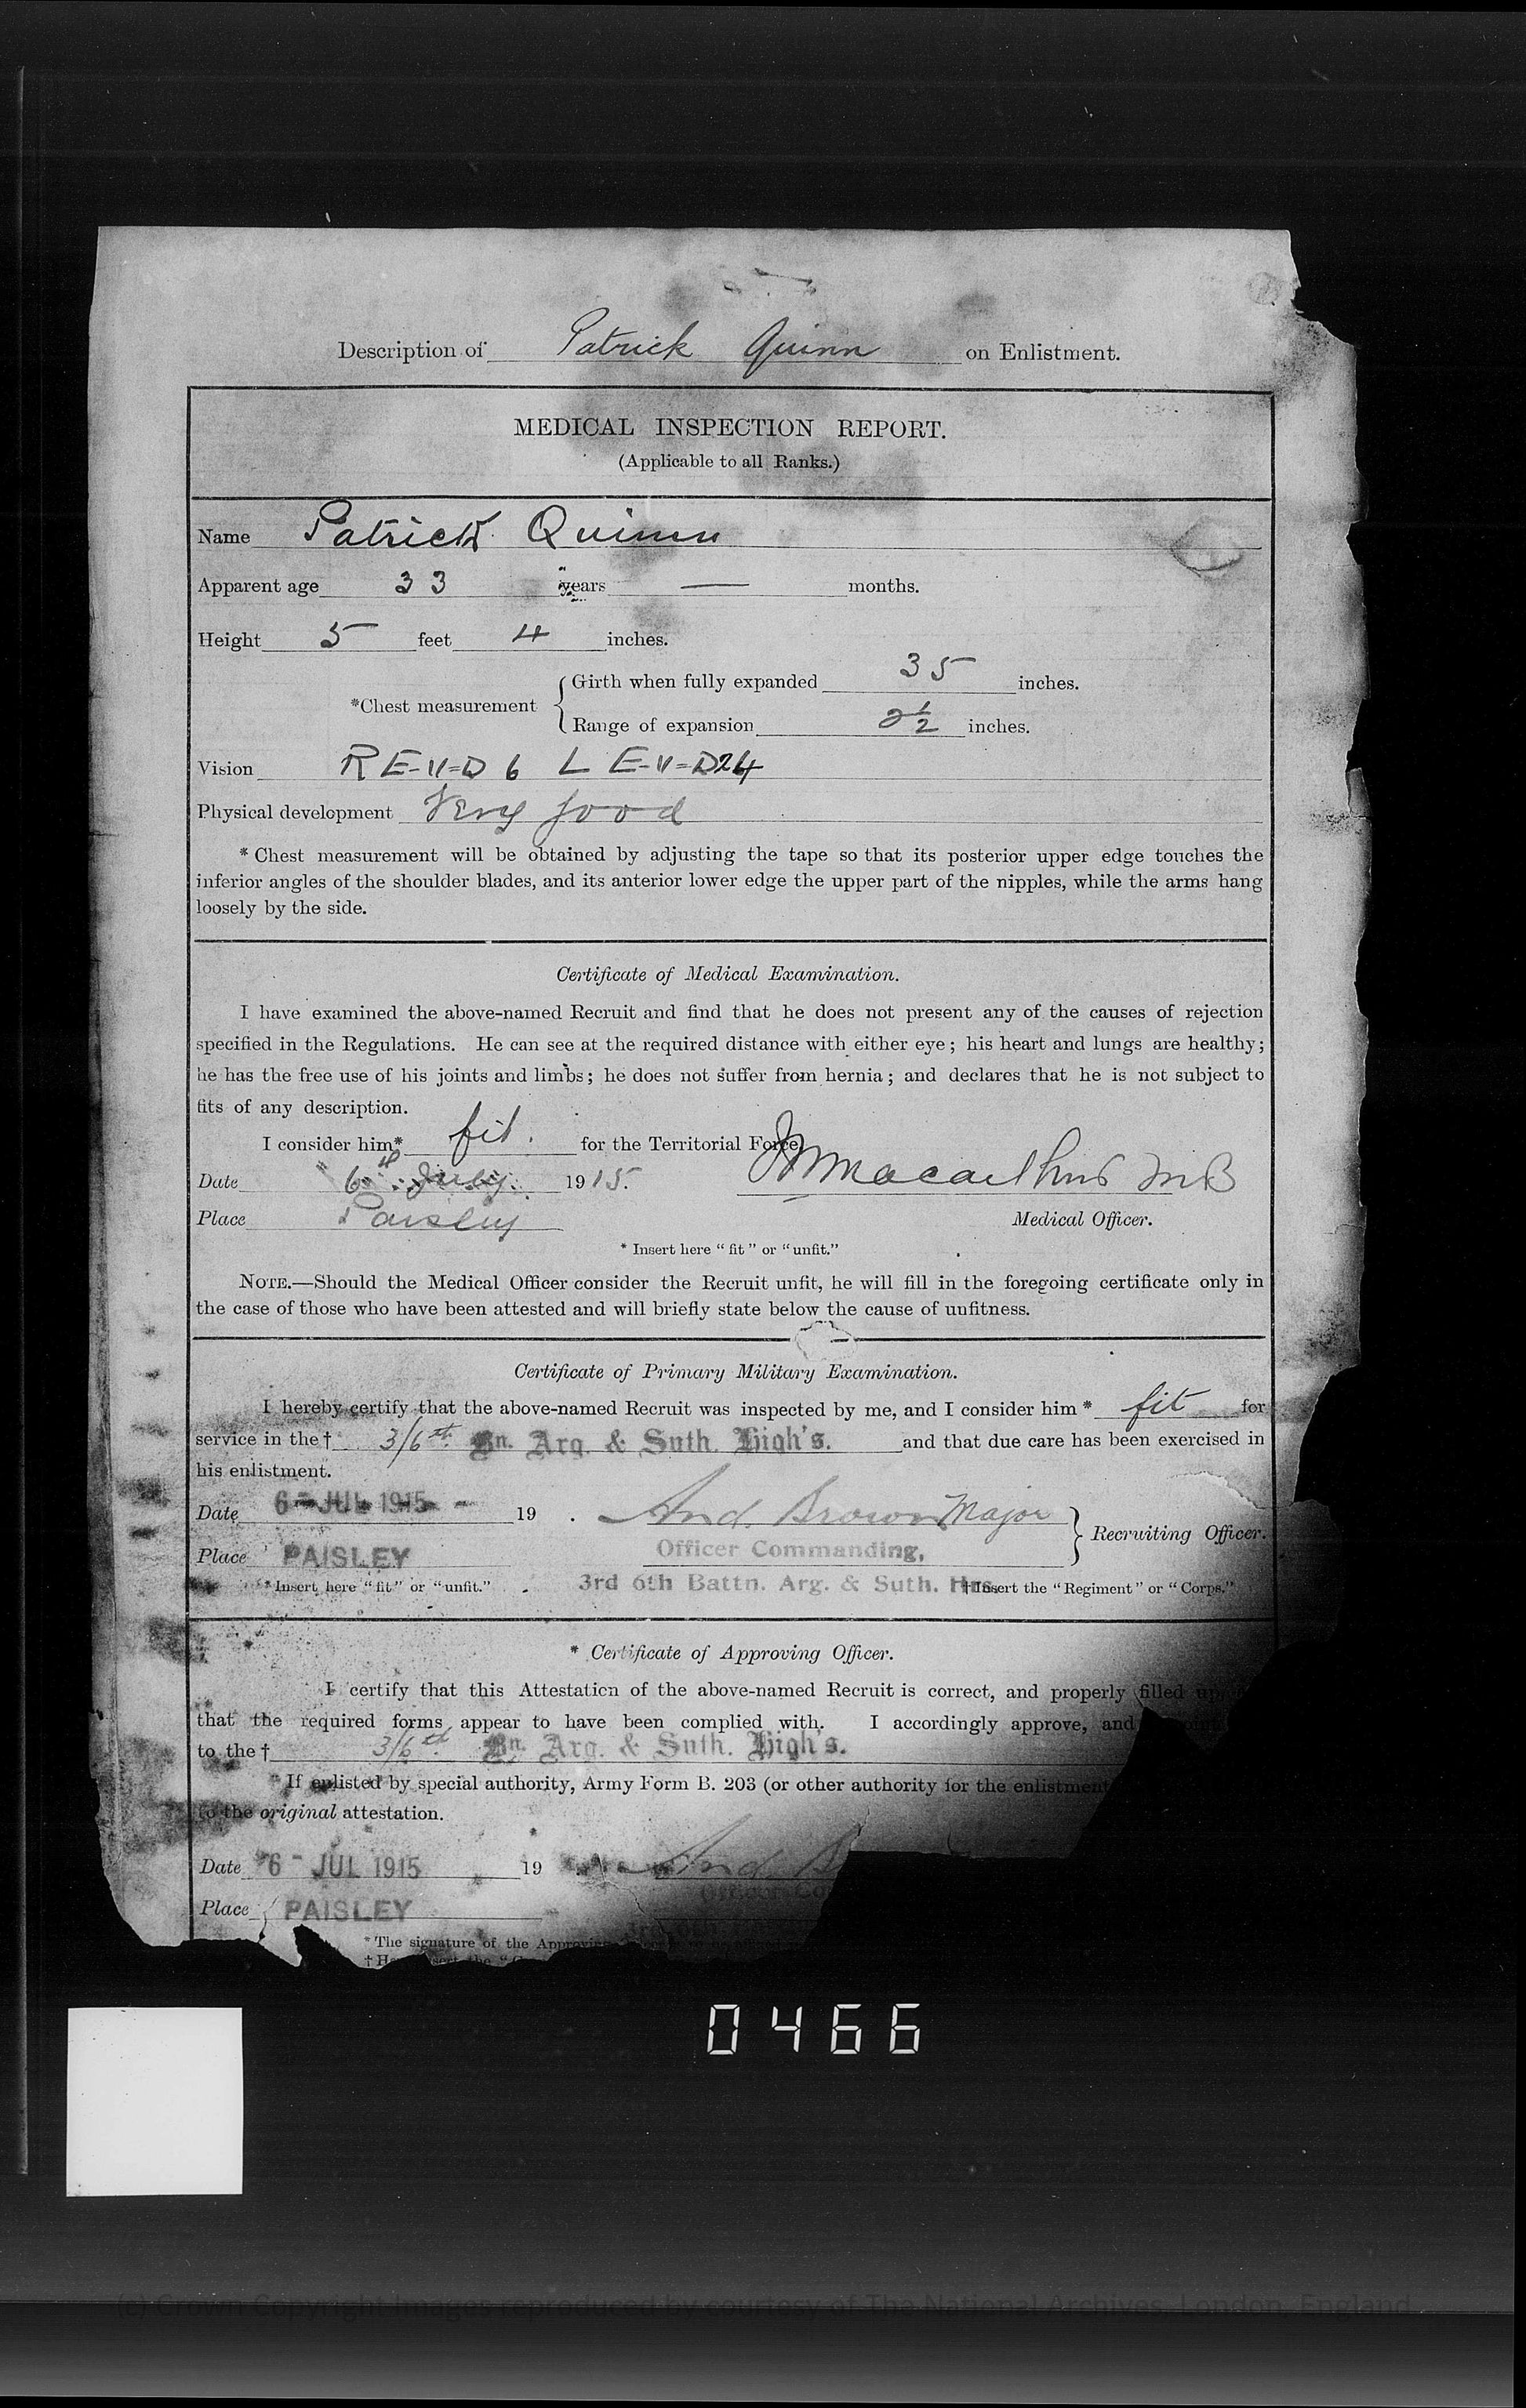 Description of Patrick Quinn on Enlistment.
MEDICAL INSPECTION REPORT.
(Applicable to all Ranks.)
Name Patrick Quinn
Apparent age 33 years — months.
Height 5 feet 4 inches.
*Chest measurement { Girth when fully expanded 35 inches.
Range of expansion 2½ inches.
Vision R E-V=D 6 L E-V=D24
Physical development Very good
* Chest measurement will be obtained by adjusting the tape so that its posterior upper edge touches the
inferior angles of the shoulder blades, and its anterior lower edge the upper part of the nipples, while the arms hang
loosely by the side.
Certificate of Medical Examination.
I have examined the above-named Recruit and find that he does not present any of the causes of rejection
specified in the Regulations. He can see at the required distance with either eye; his heart and lungs are healthy;
he has the free use of his joints and limbs; he does not suffer from hernia; and declares that he is not subject to
fits of any description.
I consider him* fit. for the Territorial Force.
Date 6th July. 1915. Macarthur MB
Place Paisley Medical Officer.
* Insert here "fit" or "unfit."
NOTE.—Should the Medical Officer consider the Recruit unfit, he will fill in the foregoing certificate only in
the case of those who have been attested and will briefly state below the cause of unfitness.
Certificate of Primary Military Examination.
I hereby certify that the above-named Recruit was inspected by me, and I consider him * fit for
service in the † 3/6th Bn. Arg. & Suth. High's. and that due care has been exercised in
his enlistment.
Date 6 - JUL 1915 - 19 . And. Brown Major } Recruiting Officer.
Place PAISLEY Officer Commanding,
* Insert here "fit" or "unfit." 3rd 6th Battn. Arg. & Suth. Hrs. † Insert the "Regiment" or "Corps."
* Certificate of Approving Officer.
I certify that this Attestation of the above-named Recruit is correct, and properly filled up,
that the required forms appear to have been complied with. I accordingly approve, and
to the † 3/6th Bn. Arg. & Suth. High's.
If enlisted by special authority, Army Form B. 203 (or other authority for the enlistment
to the original attestation.
Date 6 - JUL 1915 19 And. B
Place PAISLEY Officer Co
* The signature of the Approving
0466
(c) Crown Copyright Images reproduced by courtesy of The National Archives, London, England